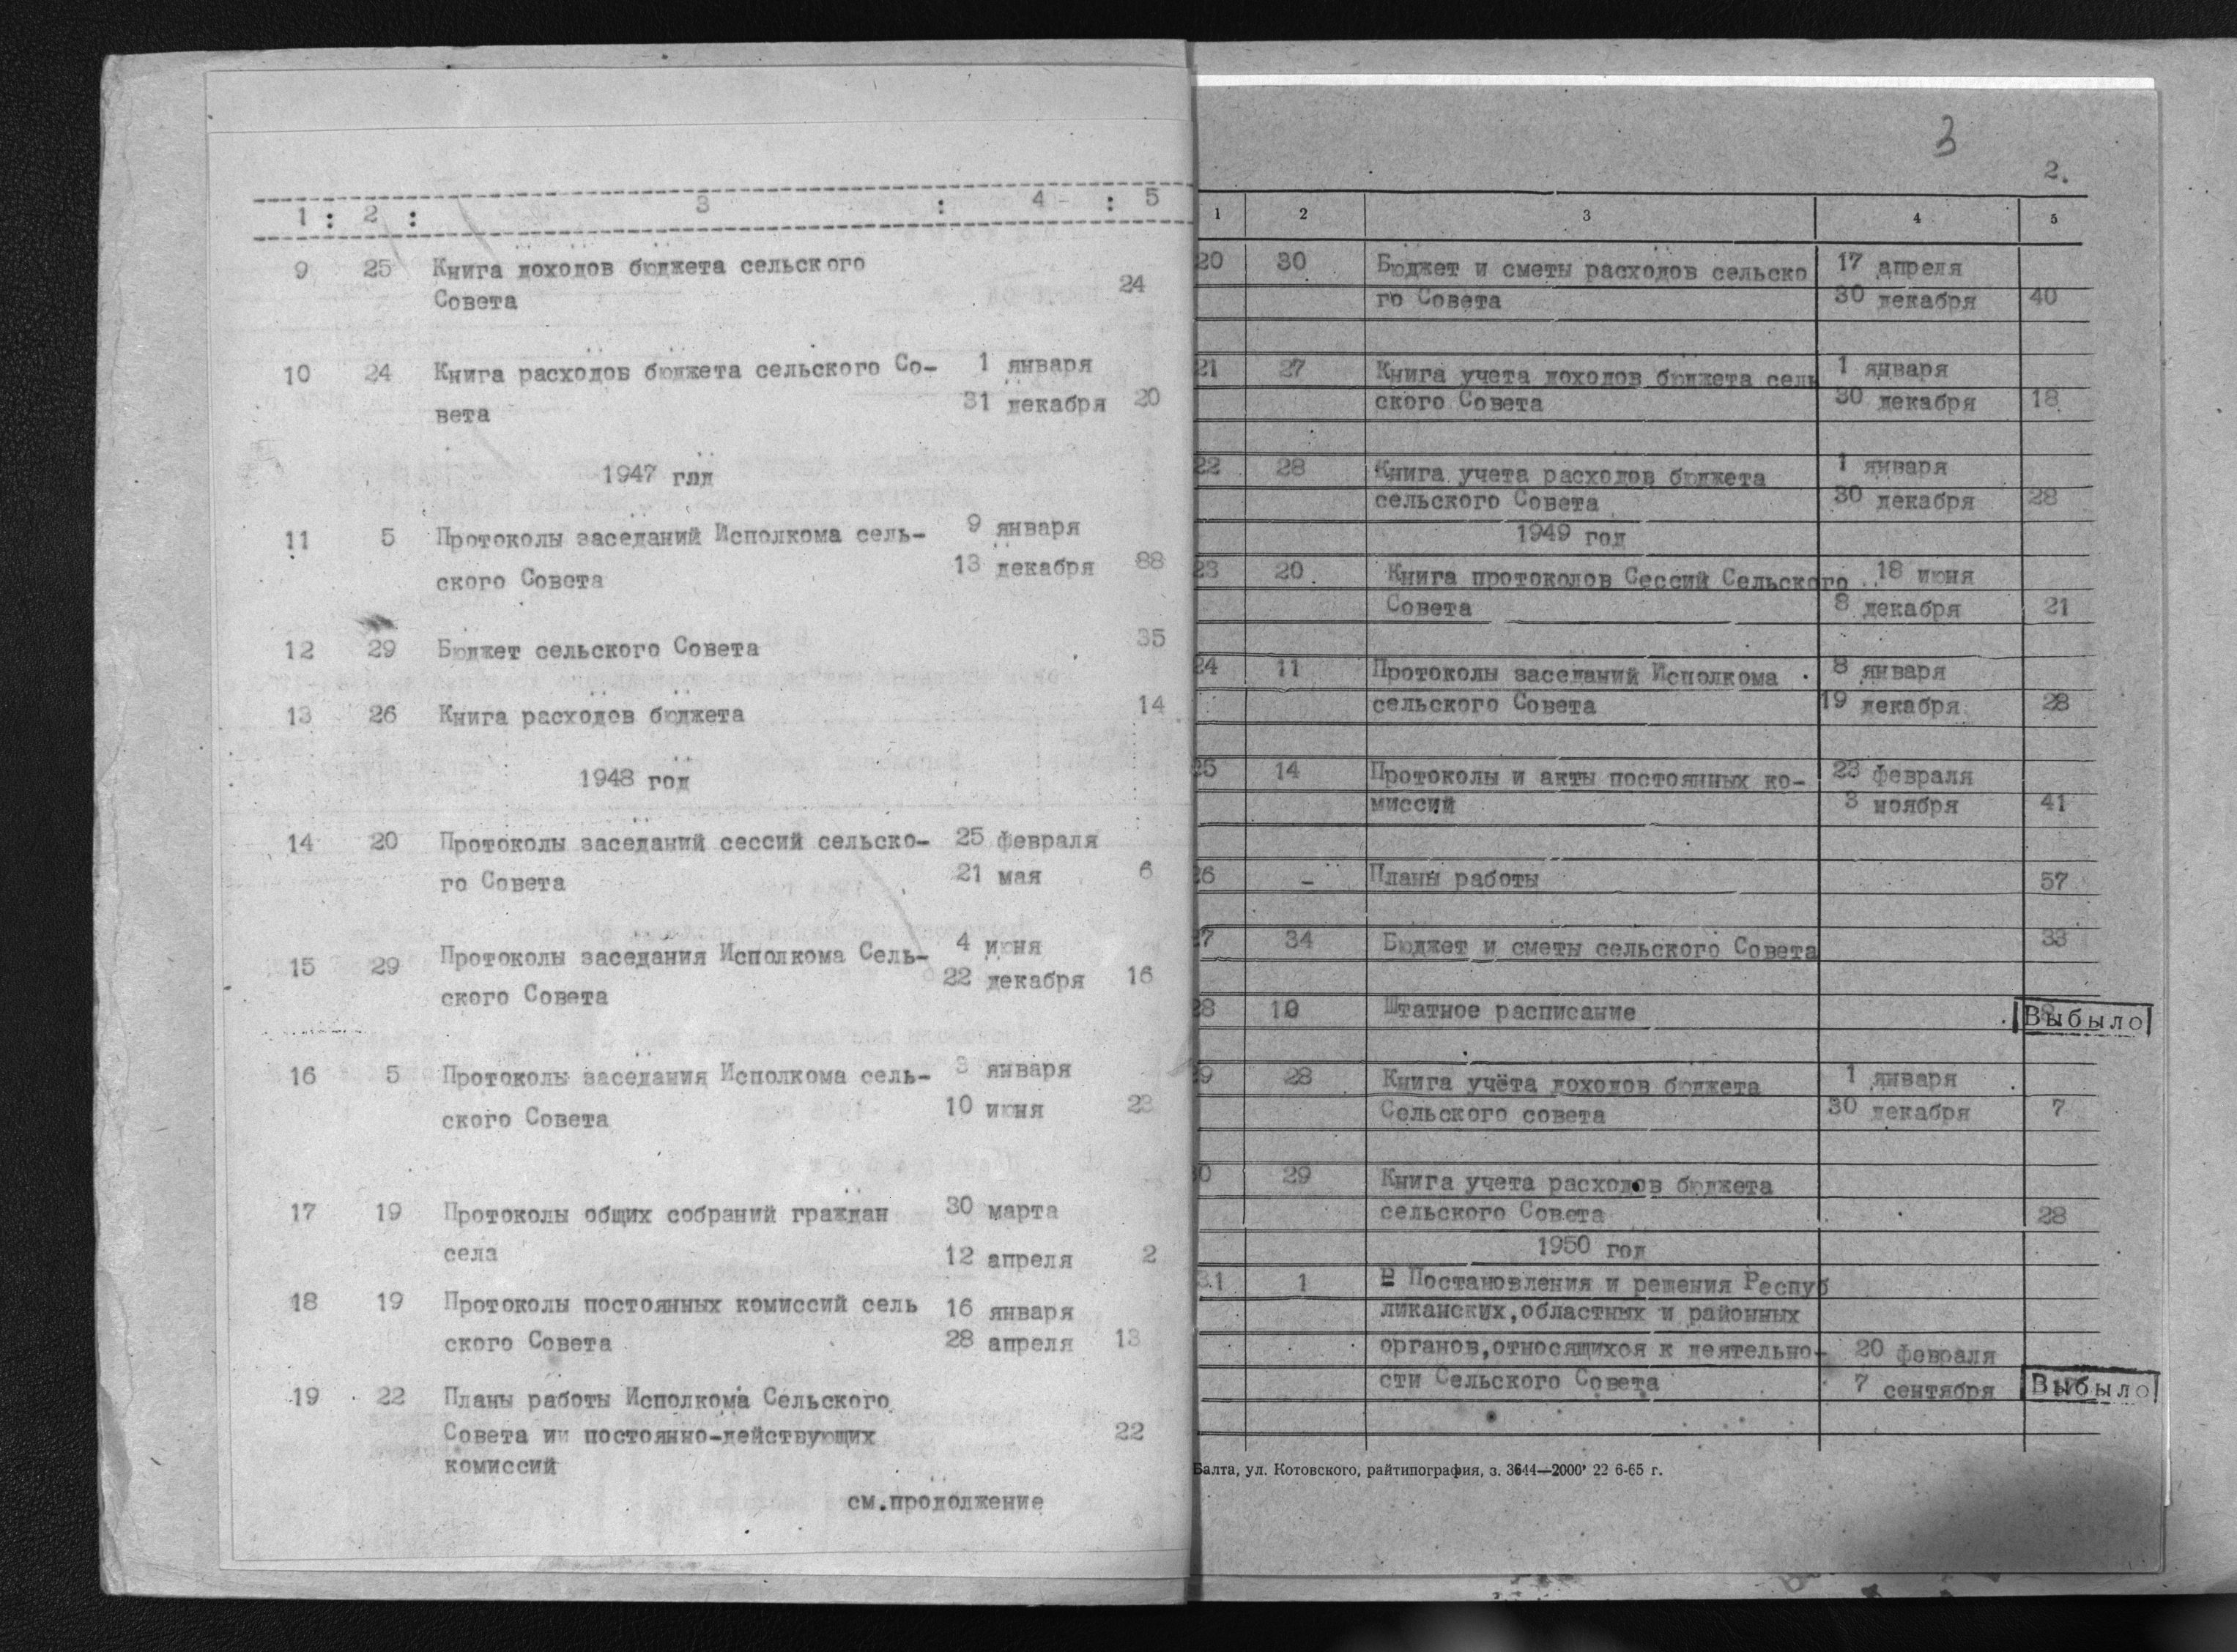 1 : 2 : 3 : 4 - : 5
9 25 Книга доходов бюджета сельского
Совета 24
10 24 Книга расходов бюджета сельского Со- 1 января
вета 31 декабря 20
1947 год
11 5 Протоколы заседаний Исполкома сель- 9 января
ского Совета 13 декабря 88
12 29 Бюджет сельского Совета 35
13 26 Книга расходов бюджета 14
1948 год
14 20 Протоколы заседаний сессий сельско- 25 февраля
го Совета 21 мая 6
15 29 Протоколы заседания Исполкома Сель- 4 июня
ского Совета 22 декабря 16
16 5 Протоколы заседания Исполкома сель- 3 января
ского Совета 10 июня 23
17 19 Протоколы общих собраний граждан 30 марта
села 12 апреля 2
18 19 Протоколы постоянных комиссий сель 16 января
ского Совета 28 апреля 13
19 22 Планы работы Исполкома Сельского
Совета ии постоянно-действующих 22
комиссий
см.продолжение
3
2.
1 2 3 4 5
20 30 Бюджет и сметы расходов сельско 17 апреля
го Совета 30 декабря 40
21 27 Книга учета доходов бюджета сель 1 января
ского Совета 30 декабря 18
22 28 Книга учета расходов бюджета 1 января
сельского Совета 30 декабря 28
1949 год
23 20 Книга протоколов Сессий Сельского 18 июня
Совета 8 декабря 21
24 11 Протоколы заседаний Исполкома 8 января
сельского Совета 19 декабря 28
25 14 Протоколы и акты постоянных ко- 23 февраля
миссий 3 ноября 41
26 - Планы работы 57
27 34 Бюджет и сметы сельского Совета 33
28 10 Штатное расписание Выбыло
29 28 Книга учёта доходов бюджета 1 января
Сельского совета 30 декабря 7
30 29 Книга учета расходов бюджета
сельского Совета 28
1950 год
31 1 Постановления и решения Респуб
ликанских,областных и районных
органов,относящихся к деятельно- 20 февраля
сти Сельского Совета 7 сентября Выбыло
Балта, ул. Котовского, райтипография, з. 3644—2000' 22 6-65 г.